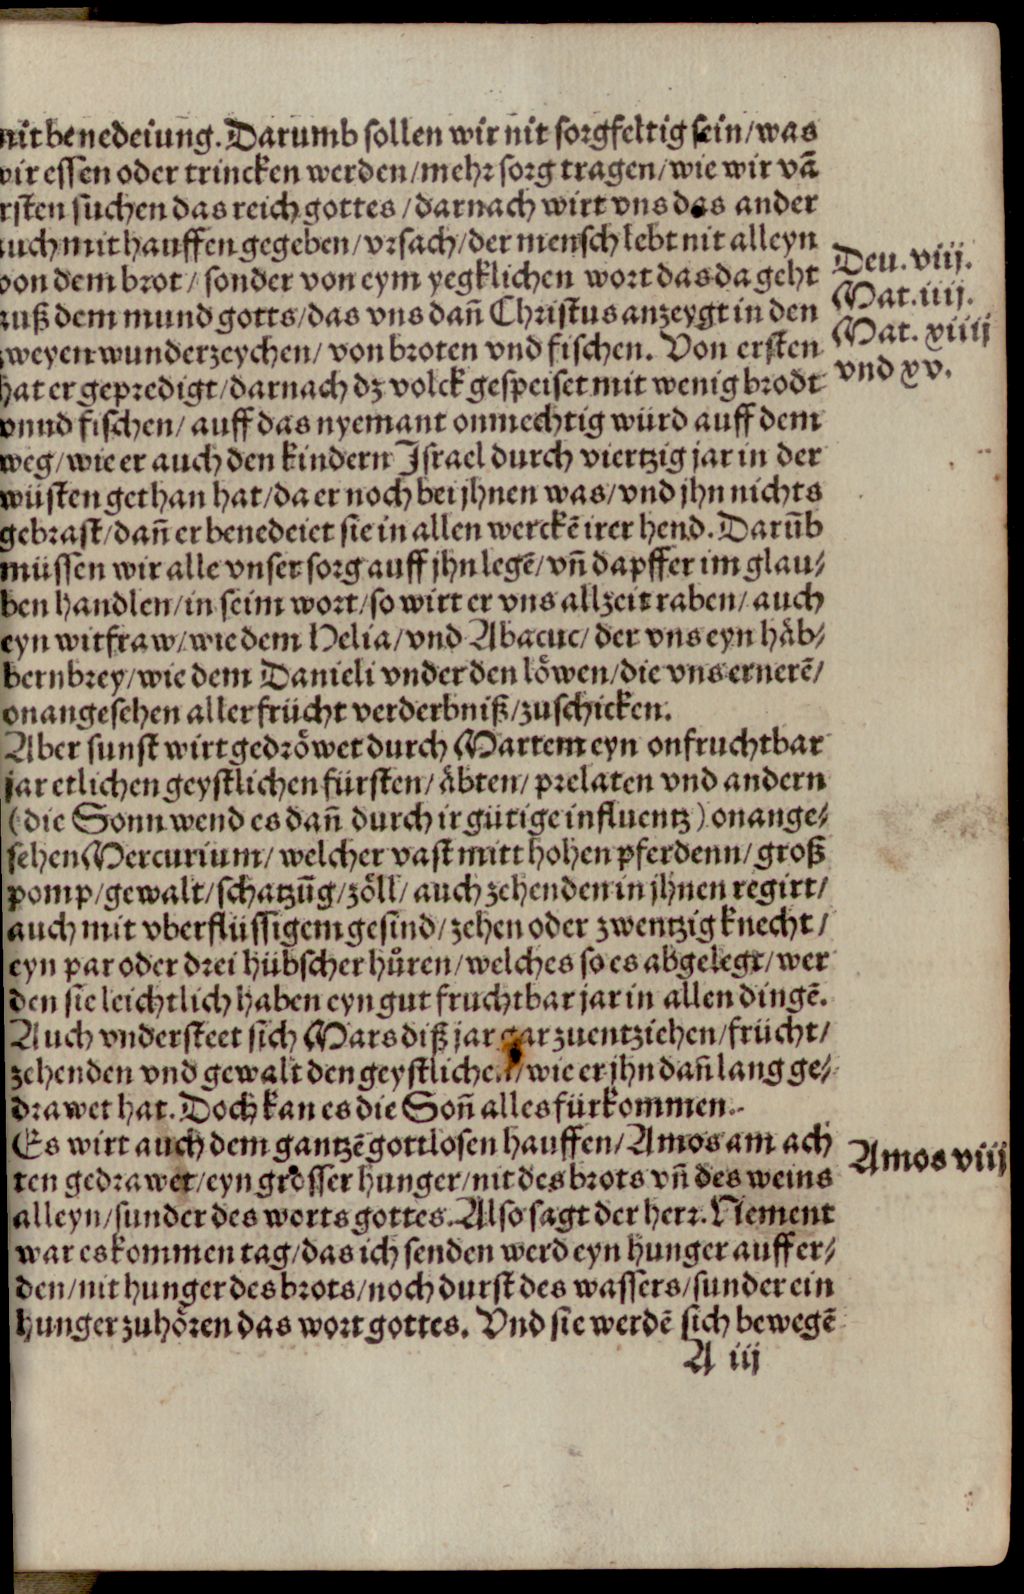 nit benedeiung. Darumb sollen wir nit sorgfeltig sein/was
wir essen oder trincken werden/mehr sorg tragen/wie wir vā
rsten suchen das reich gottes/darnach wirt vns das ander
auch mit hauffen gegeben/vrsach/der mensch lebt nit alleyn
von dem brot/sonder von eym yegklichen wort das da geht
auß dem mund gotts/das vns dañ Christus anzeygt in den
zweyen wunderzeychen/von broten vnd fischen. Von ersten
hat er gepredigt/darnach dz volck gespeiset mit wenig brodt
vnnd fischen/auff das nyemant onmechtig würd auff dem
weg/wie er auch den kindern Israel durch viertzig jar in der
wüsten gethan hat/da er noch bei jhnen was/vnd jhn nichts
gebrast/dañ er benedeiet sie in allen werckē irer hend. Darūb
müssen wir alle vnser sorg auff jhn legē/vñ dapffer im glau/
ben handlen/in seim wort/so wirt er vns allzeit raben/auch
eyn witfraw/wie dem Helia/vnd Abacuc/der vns eyn häb/
bernbrey/wie dem Danieli vnder den löwen/die vns ernerē/
onangesehen aller frücht verderbniß/zuschicken.
Aber sunst wirt gedröwet durch Martem eyn onfruchtbar
jar etlichen geystlichen fürsten/äbten/prelaten vnd andern
(die Sonn wend es dañ durch ir gütige influentz) onange/
sehen Mercurium/welcher vast mitt hohen pferdenn/groß
pomp/gewalt/schatzūg/zöll/auch zehenden in jhnen regirt/
auch mit vberflüssigem gesind/zehen oder zwentzig knecht/
eyn par oder drei hübscher hůren/welches so es abgelegt/wer
den sie leichtlich haben eyn gut fruchtbar jar in allen dingē.
Auch vndersteet sich Mars diß jar gar zuentziehen/frücht/
zehenden vnd gewalt den geystlichen/wie er jhn dañ lang ge/
drawet hat. Doch kan es die Soñ alles fürkommen.
Es wirt auch dem gantzē gottlosen hauffen/Amos am ach
ten gedrawet/eyn grosser hunger/nit des brots vñ des weins
alleyn/sunder des worts gottes. Also sagt der herr. Nement
war es kommen tag/das ich senden werd eyn hunger auff er/
den/nit hunger des brots/noch durst des wassers/sunder ein
hunger zuhören das wort gottes. Vnd sie werdē sich bewegē
A iij
Deu. viij.
Mat. iiij.
Mat. xiiij
vnd xv.
Amos viij